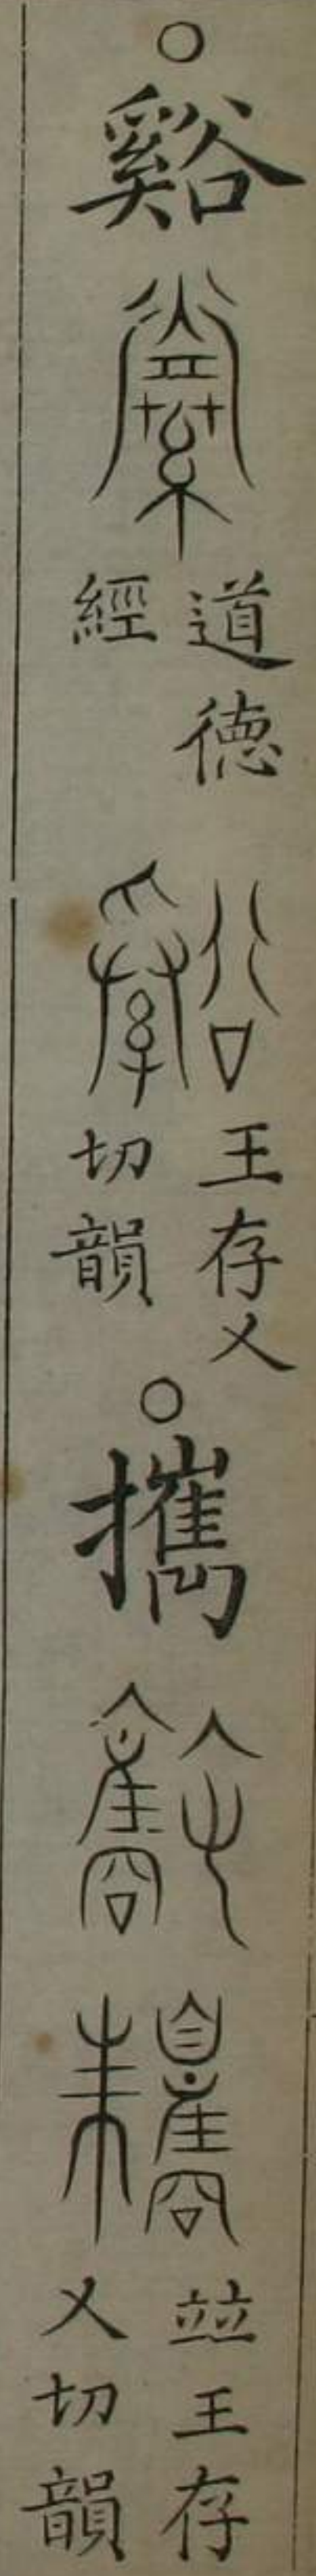 ○谿 道德經 王存乂切韻○攜 竝王存乂切韻